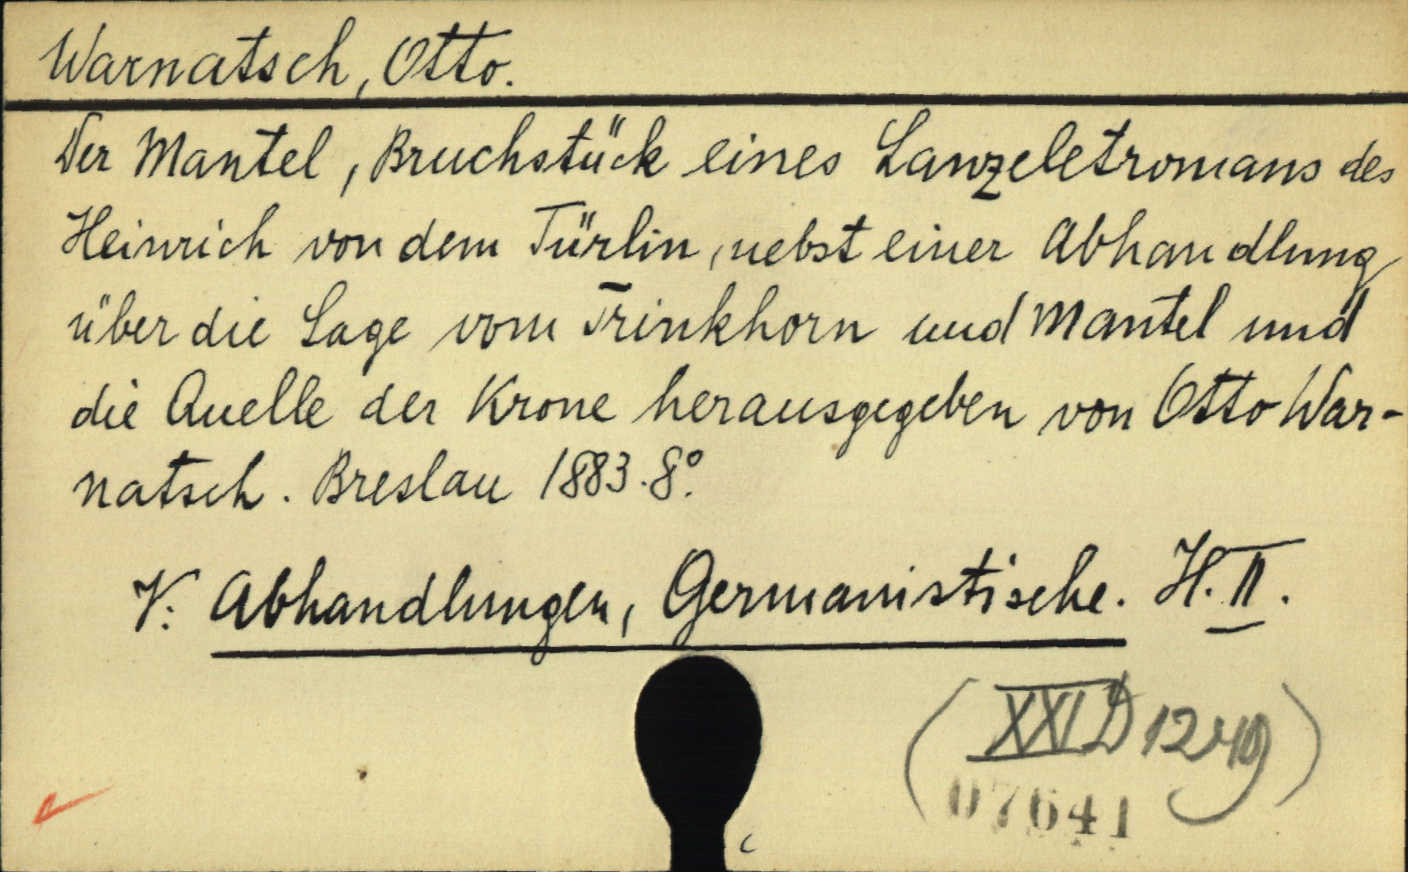 Warnatsch, Otto.
Der Mantel, Bruchstück eines Lanzeletromans des
Heinrich von dem Türlin, nebst einer Abhandlung
über die Sage vom Trinkhorn und Mantel und
die Quelle der Krone herausgegeben von Otto War-
natsch. Breslau 1883. 8°.
V: Abhandlungen, Germanistische. H. II.
(XXI D 1249)
07641